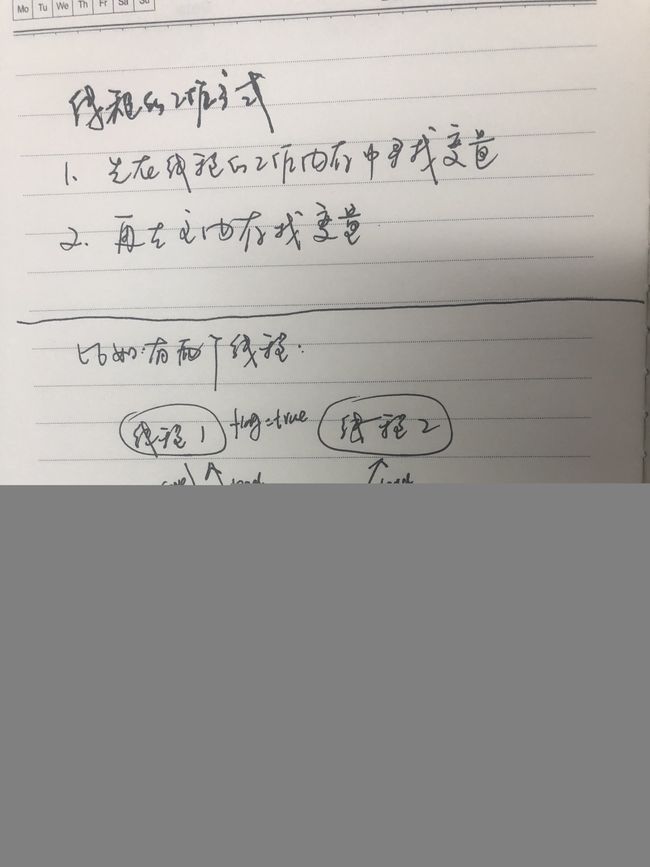 Mo Tu We Th Fr Sa Su
线程的工作方式
1. 先在线程的工作内存中寻找变量
2. 再去主内存找变量
比如:有两个线程:
线程1 flag=true 线程2